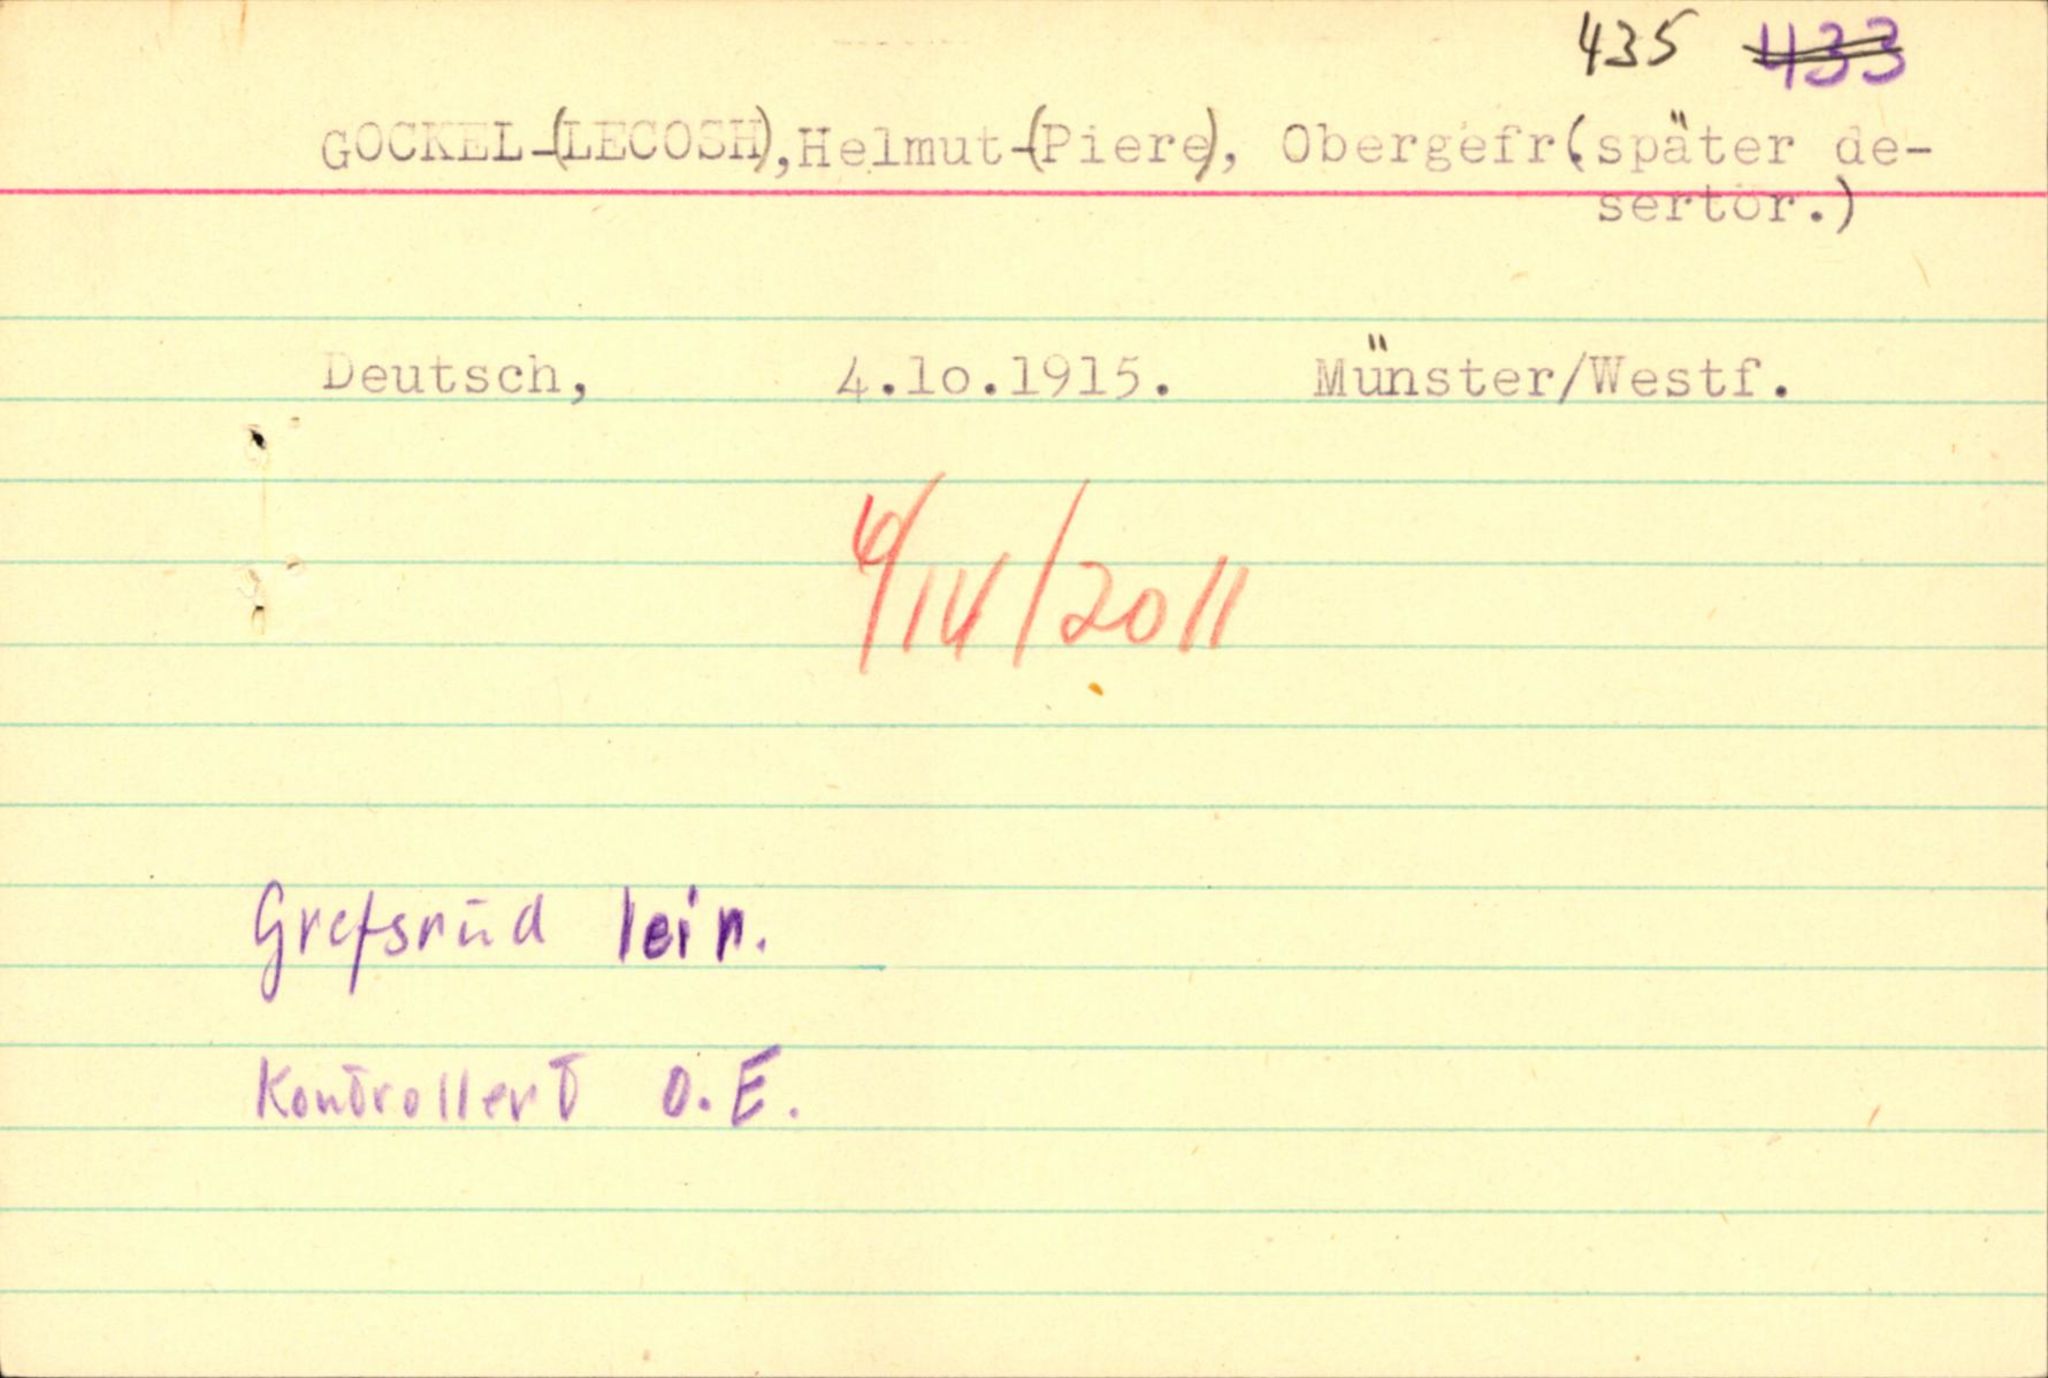 435 433
GOCKEL-(LECOSH),Helmut-(Piere), Obergefr(.später de-
sertör.)
Deutsch, 4.1o.1915. Münster/Westf.
4/IV/2011
Grefsrud leir.
Kontrollert O.E.